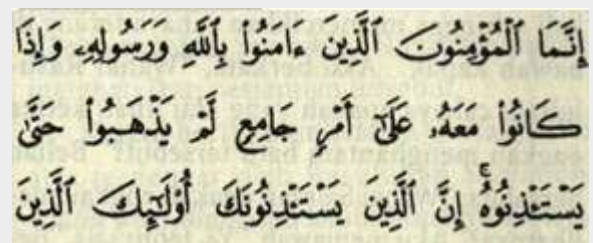 إِنَّمَا ٱلْمُؤْمِنُونَ ٱلَّذِينَ ءَامَنُوا۟ بِٱللَّهِ وَرَسُولِهِۦ وَإِذَا
كَانُوا۟ مَعَهُۥ عَلَىٰٓ أَمْرٍ جَامِعٍ لَّمْ يَذْهَبُوا۟ حَتَّىٰ
يَسْتَـْٔذِنُوهُ ۚ إِنَّ ٱلَّذِينَ يَسْتَـْٔذِنُونَكَ أُو۟لَـٰٓئِكَ ٱلَّذِينَ